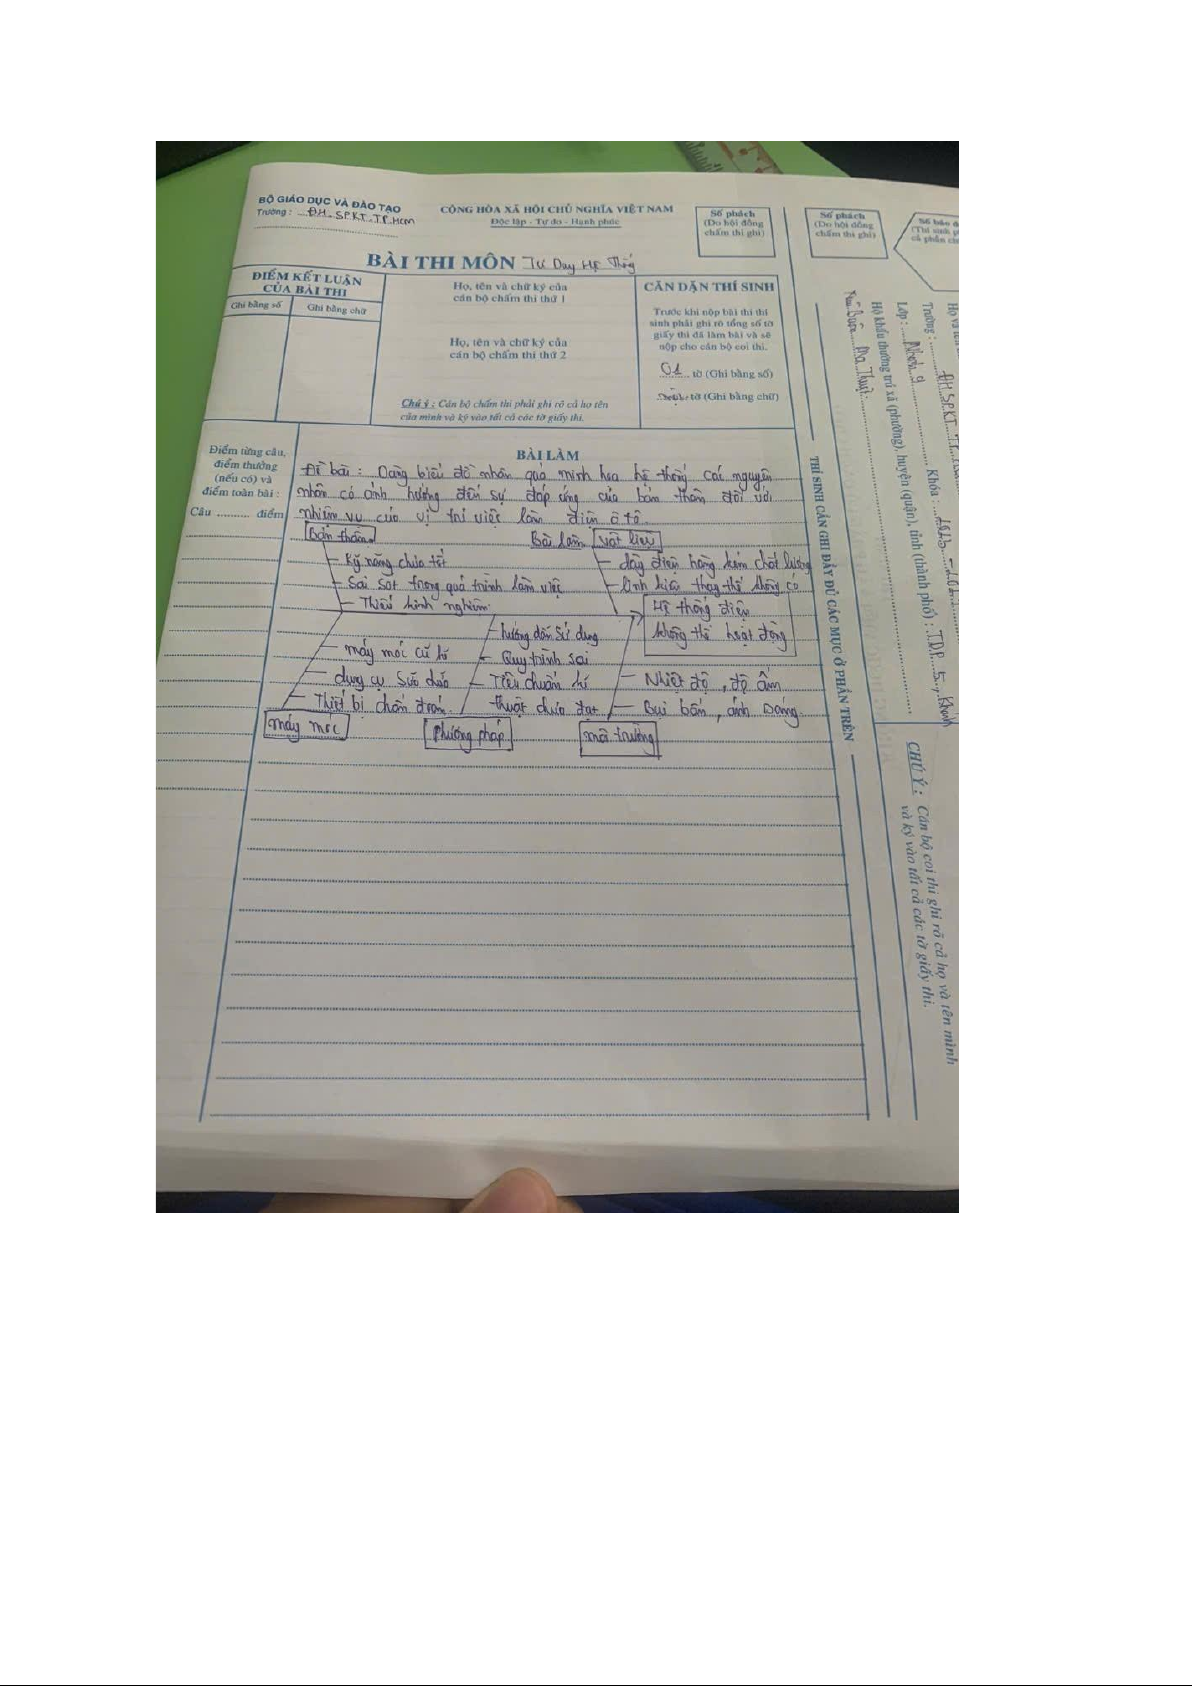 BỘ GIÁO DỤC VÀ ĐÀO TẠO
Trường : ĐH.SPKT.TP.HCM
CỘNG HÒA XÃ HỘI CHỦ NGHĨA VIỆT NAM
Độc lập - Tự do - Hạnh phúc
Số phách
(Do hội đồng
chấm thi ghi)
Số phách
(Do hội đồng
chấm thi ghi)
BÀI THI MÔN Tư Duy Hệ Thống
ĐIỂM KẾT LUẬN
CỦA BÀI THI
Ghi bằng số
Ghi bằng chữ
Họ, tên và chữ ký của
cán bộ chấm thi thứ 1
Họ, tên và chữ ký của
cán bộ chấm thi thứ 2
Chú ý : Cán bộ chấm thi phải ghi rõ cả họ tên
của mình và ký vào tất cả các tờ giấy thi.
CĂN DẶN THÍ SINH
Trước khi nộp bài thi thí
sinh phải ghi rõ tổng số tờ
giấy thi đã làm bài và sẽ
nộp cho cán bộ coi thi.
01 tờ (Ghi bằng số)
tờ (Ghi bằng chữ)
Điểm từng câu,
điểm thưởng
(nếu có) và
điểm toàn bài :
Câu .......... điểm
BÀI LÀM
Đề bài : Dùng biểu đồ nhân quả minh họa hệ thống các nguyên
nhân có ảnh hưởng đến sự đáp ứng của bản thân đối với
nhiệm vụ của vị trí việc làm điện ô tô.
Bài làm
Bản thân
- Kỹ năng chưa tốt
- Sai sót trong quá trình làm việc
- Thiếu kinh nghiệm
vật liệu
- dây điện hàng kém chất lượng
- linh kiện thay thế không có
Hệ thống điện
không thể hoạt động
- máy móc cũ kĩ
- dụng cụ sửa chữa
- Thiết bị chẩn đoán
máy móc
- hướng dẫn sử dụng
- Quy trình sai
- Tiêu chuẩn kĩ
thuật chưa đạt
phương pháp
- Nhiệt độ, độ ẩm
- Bụi bẩn, ánh sáng
môi trường
THÍ SINH CẦN GHI ĐẦY ĐỦ CÁC MỤC Ở PHẦN TRÊN
Trường : ĐH.SPKT
Lớp : Nhóm 9 Khóa :
Hộ khẩu thường trú xã (phường), huyện (quận), tỉnh (thành phố) : TDP 5, Khánh
Ma Thuột
CHÚ Ý : Cán bộ coi thi ghi rõ cả họ và tên mình
và ký vào tất cả các tờ giấy thi.